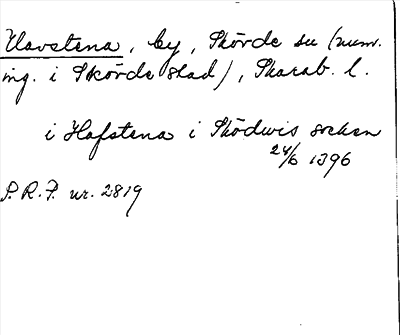 Havstena, by, Skövde sn (num.
ing. i Skövde stad), Skarab. l.
i Hafstena i Sködwis socken
24/6 1396
S.R.P. nr. 2819